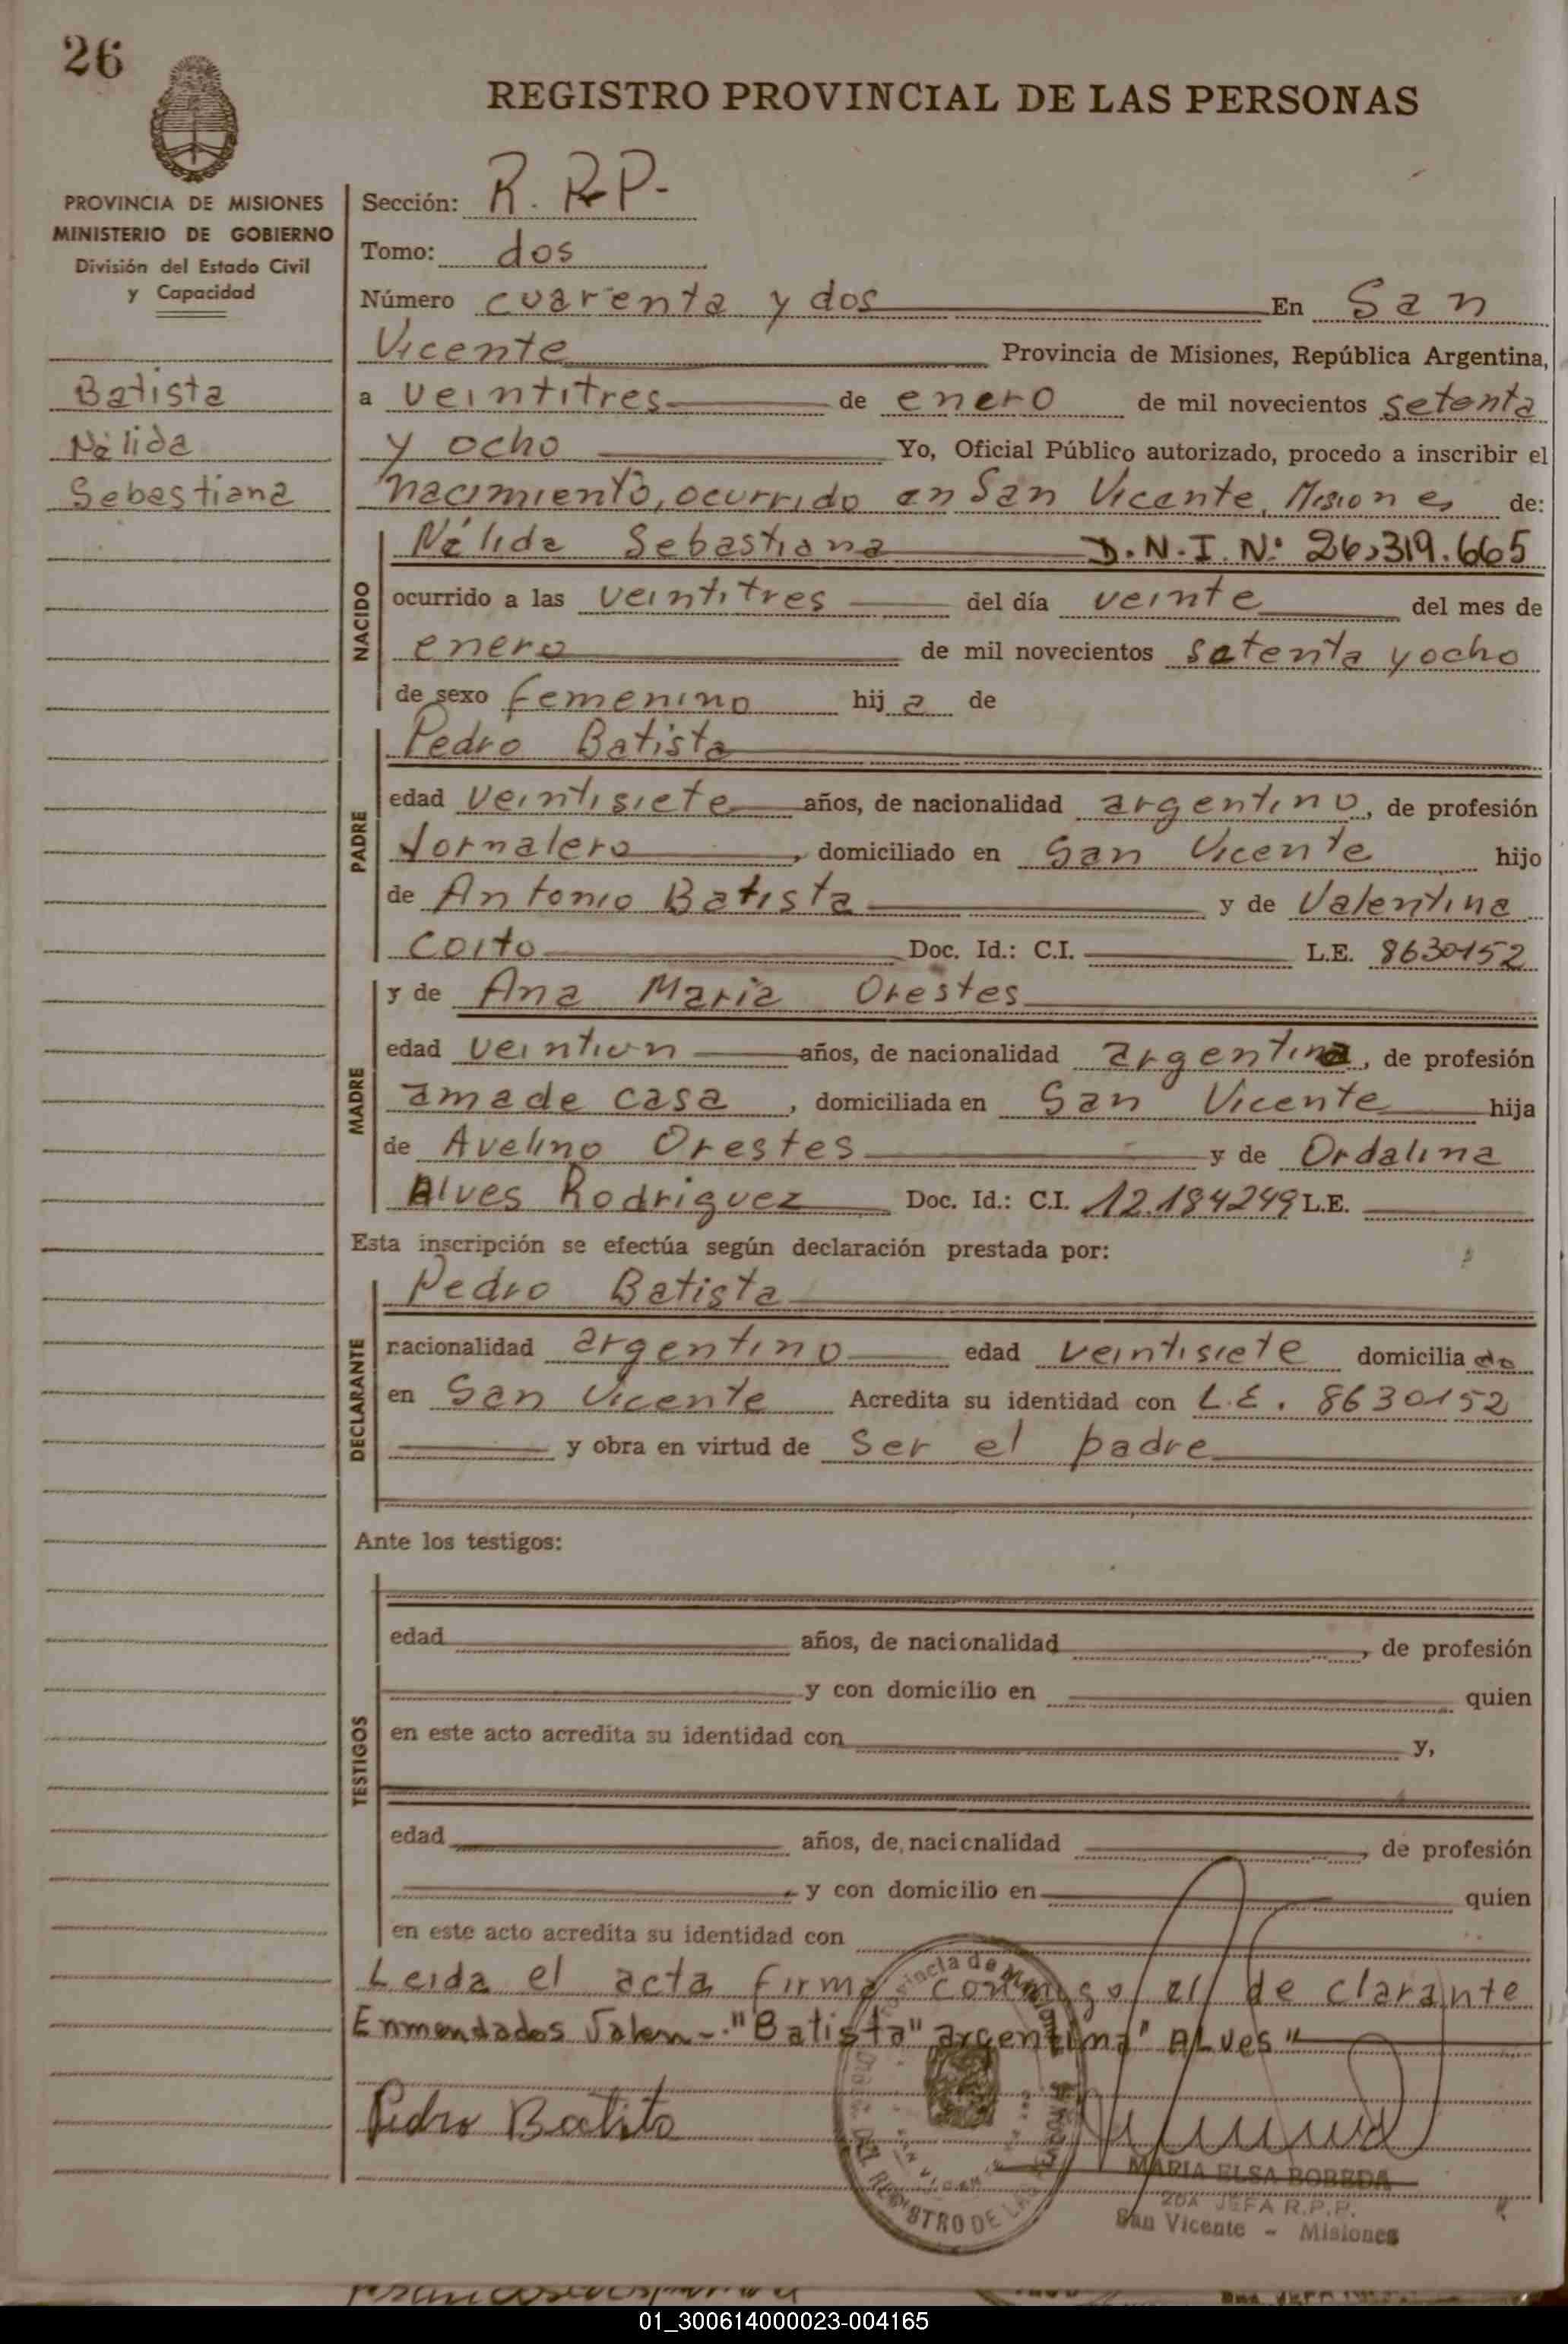 26
REGISTRO PROVINCIAL DE LAS PERSONAS
PROVINCIA DE MISIONES
MINISTERIO DE GOBIERNO
División del Estado Civil
y Capacidad
Batista
Nélida
Sebastiana
Sección: R. R.P.-
Tomo: dos
Número cuarenta y dos En San
Vicente Provincia de Misiones, República Argentina,
a veintitres de enero de mil novecientos setenta
y ocho Yo, Oficial Público autorizado, procedo a inscribir el
nacimiento, ocurrido en San Vicente, Misiones de:
NACIDO
Nélida Sebastiana D.N.I.Nº 26,319.665
ocurrido a las veintitres del día veinte del mes de
enero de mil novecientos setenta y ocho
de sexo femenino hij a de
PADRE
Pedro Batista
edad veintisiete años, de nacionalidad argentino, de profesión
Jornalero, domiciliado en San Vicente hijo
de Antonio Batista y de Valentina
Coito Doc. Id.: C.I. L.E. 8630152
MADRE
y de Ana Maria Orestes
edad veintiun años, de nacionalidad argentina, de profesión
ama de casa, domiciliada en San Vicente hija
de Avelino Orestes y de Ordalina
Alves Rodriguez Doc. Id.: C.I. 12.184249 L.E.
Esta inscripción se efectúa según declaración prestada por:
DECLARANTE
Pedro Batista
nacionalidad argentino edad veintisiete domicilia do
en San Vicente Acredita su identidad con L.E. 8630152
y obra en virtud de Ser el padre
Ante los testigos:
TESTIGOS
edad años, de nacionalidad, de profesión
y con domicilio en quien
en este acto acredita su identidad con y,
edad años, de nacionalidad, de profesión
y con domicilio en quien
en este acto acredita su identidad con
Leida el acta firma conmigo el declarante
Enmendados Valen-"Batista" argentina" ALves"
Pedro Batista
MARIA ELSA BOBEDA
2DA JEFA R.P.P.
San Vicente - Misiones
01_300614000023-004165